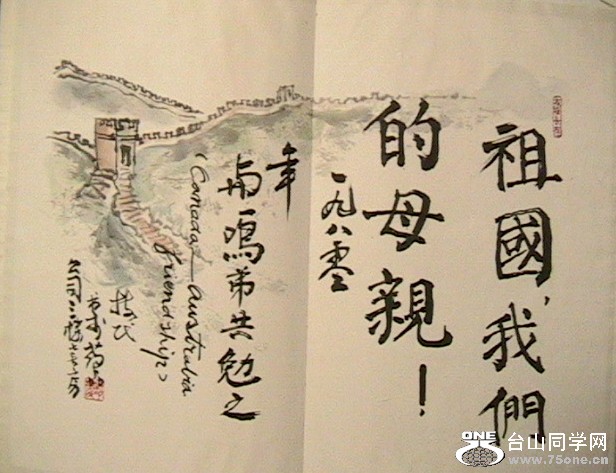 祖國，我們
的母親！
一九八零
年
与鳴弟共勉之
(Canada-Australia
friendship)
ONE
台山同学网
www.75one.cn